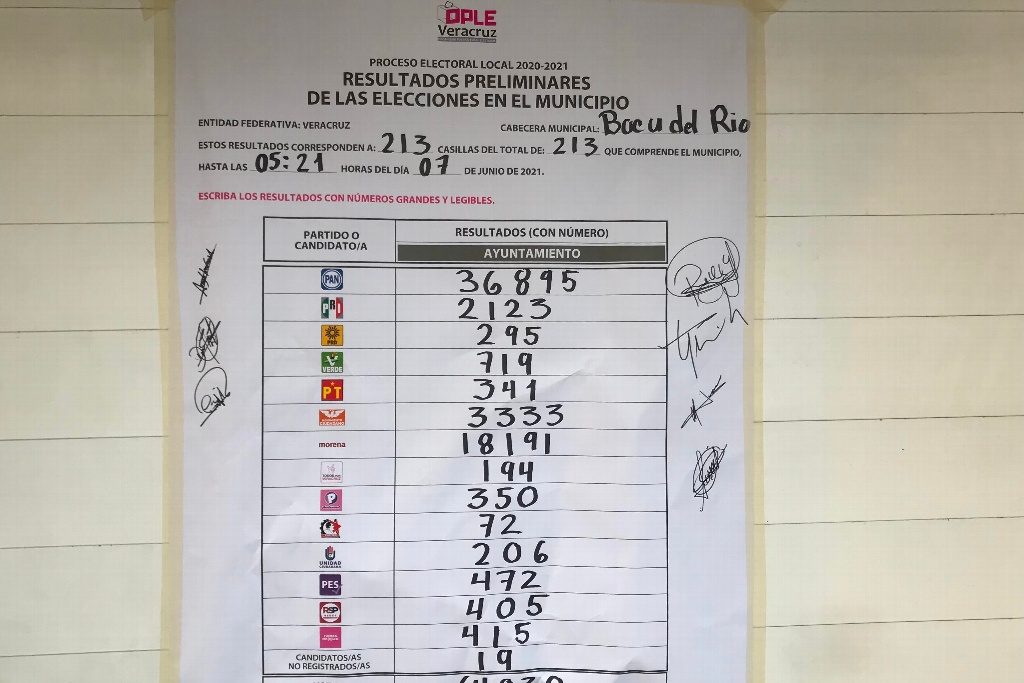 OPLE
Veracruz
PROCESO ELECTORAL LOCAL 2020-2021
RESULTADOS PRELIMINARES
DE LAS ELECCIONES EN EL MUNICIPIO
ENTIDAD FEDERATIVA: VERACRUZ CABECERA MUNICIPAL: Boca del Rio
ESTOS RESULTADOS CORRESPONDEN A: 213 CASILLAS DEL TOTAL DE: 213 QUE COMPRENDE EL MUNICIPIO,
HASTA LAS 05:21 HORAS DEL DÍA 07 DE JUNIO DE 2021.
ESCRIBA LOS RESULTADOS CON NÚMEROS GRANDES Y LEGIBLES.
PARTIDO O CANDIDATO/A RESULTADOS (CON NÚMERO)
AYUNTAMIENTO
PAN 36895
PRI 2123
PRD 295
VERDE 719
PT 341
CIUDADANO 3333
morena 18191
194
350
72
UNIDAD CIUDADANA 206
PES 472
RSP 405
415
CANDIDATOS/AS NO REGISTRADOS/AS 19